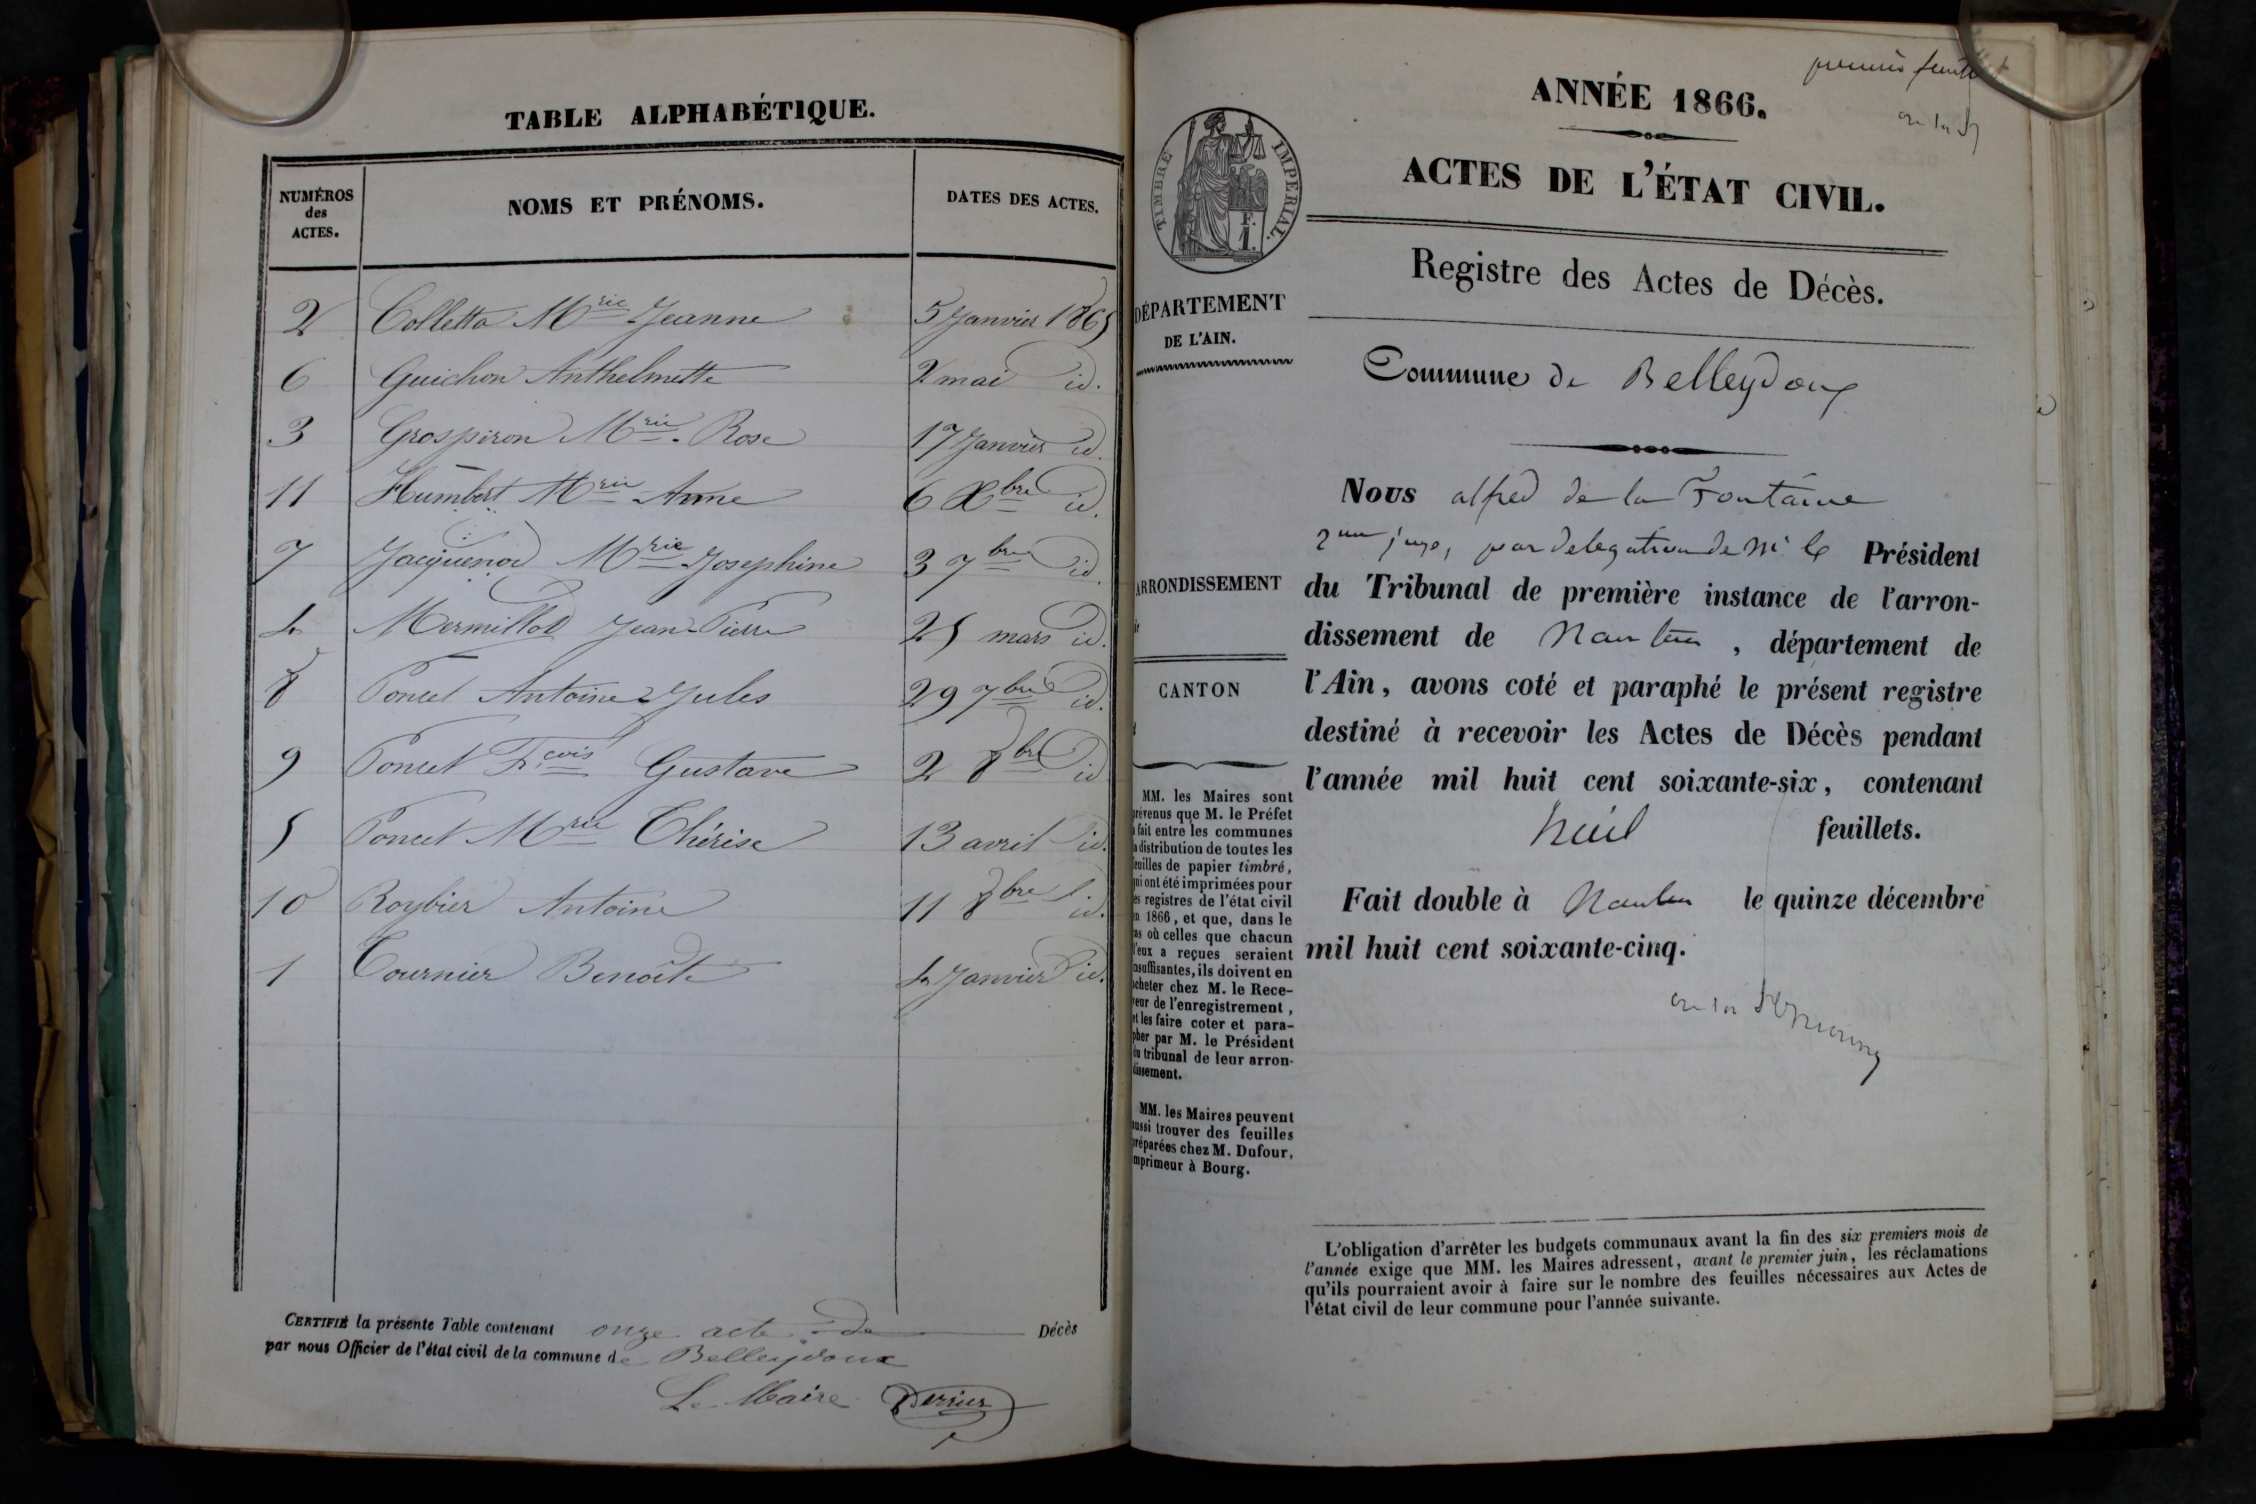 TABLE ALPHABÉTIQUE.
NUMÉROS des ACTES. NOMS ET PRÉNOMS. DATES DES ACTES.
2 Colletta Mrie Jeanne 5 Janvier 1865
6 Guichon Anthelmette 2 mai id.
3 Grospiron Mrie Rose 17 Janvier id.
11 Humbert Mrie Anne 6 Xbre id.
7 Jacquenod Mrie Josephine 3 7bre id.
4 Mermillod Jean-Pierre 25 mars id.
8 Poncet Antoine Jules 29 7bre id.
9 Poncet Fçois Gustave 2 8bre id
5 Poncet Mrie Thérise 13 avril id.
10 Roybier Antoine 11 8bre id.
1 Tournier Benoîte 4 Janvier id.
CERTIFIÉ la présente Table contenant onze acte de Décès
par nous Officier de l'état civil de la commune de Belleydoux
Le Maire Perrier
premier feuillet
ANNÉE 1866.
ACTES DE L'ÉTAT CIVIL.
TIMBRE IMPERIAL.
F.
1.
Registre des Actes de Décès.
DÉPARTEMENT
DE L'AIN.
Commune de Belleydoux
Nous alfred de la Fontaine
2me juge, par delegation de Mr le Président
du Tribunal de première instance de l'arron-
dissement de Nantua, département de
l'Ain, avons coté et paraphé le présent registre
destiné à recevoir les Actes de Décès pendant
l'année mil huit cent soixante-six, contenant
huit feuillets.
Fait double à Nantua le quinze décembre
mil huit cent soixante-cinq.
ARRONDISSEMENT
CANTON
MM. les Maires sont
prévenus que M. le Préfet
a fait entre les communes
la distribution de toutes les
feuilles de papier timbré,
qui ont été imprimées pour
les registres de l'état civil
en 1866, et que, dans le
cas où celles que chacun
d'eux a reçues seraient
insuffisantes, ils doivent en
acheter chez M. le Rece-
veur de l'enregistrement,
et les faire coter et para-
pher par M. le Président
du tribunal de leur arron-
dissement.
MM. les Maires peuvent
aussi trouver des feuilles
préparées chez M. Dufour,
imprimeur à Bourg.
L'obligation d'arrêter les budgets communaux avant la fin des six premiers mois de
l'année exige que MM. les Maires adressent, avant le premier juin, les réclamations
qu'ils pourraient avoir à faire sur le nombre des feuilles nécessaires aux Actes de
l'état civil de leur commune pour l'année suivante.